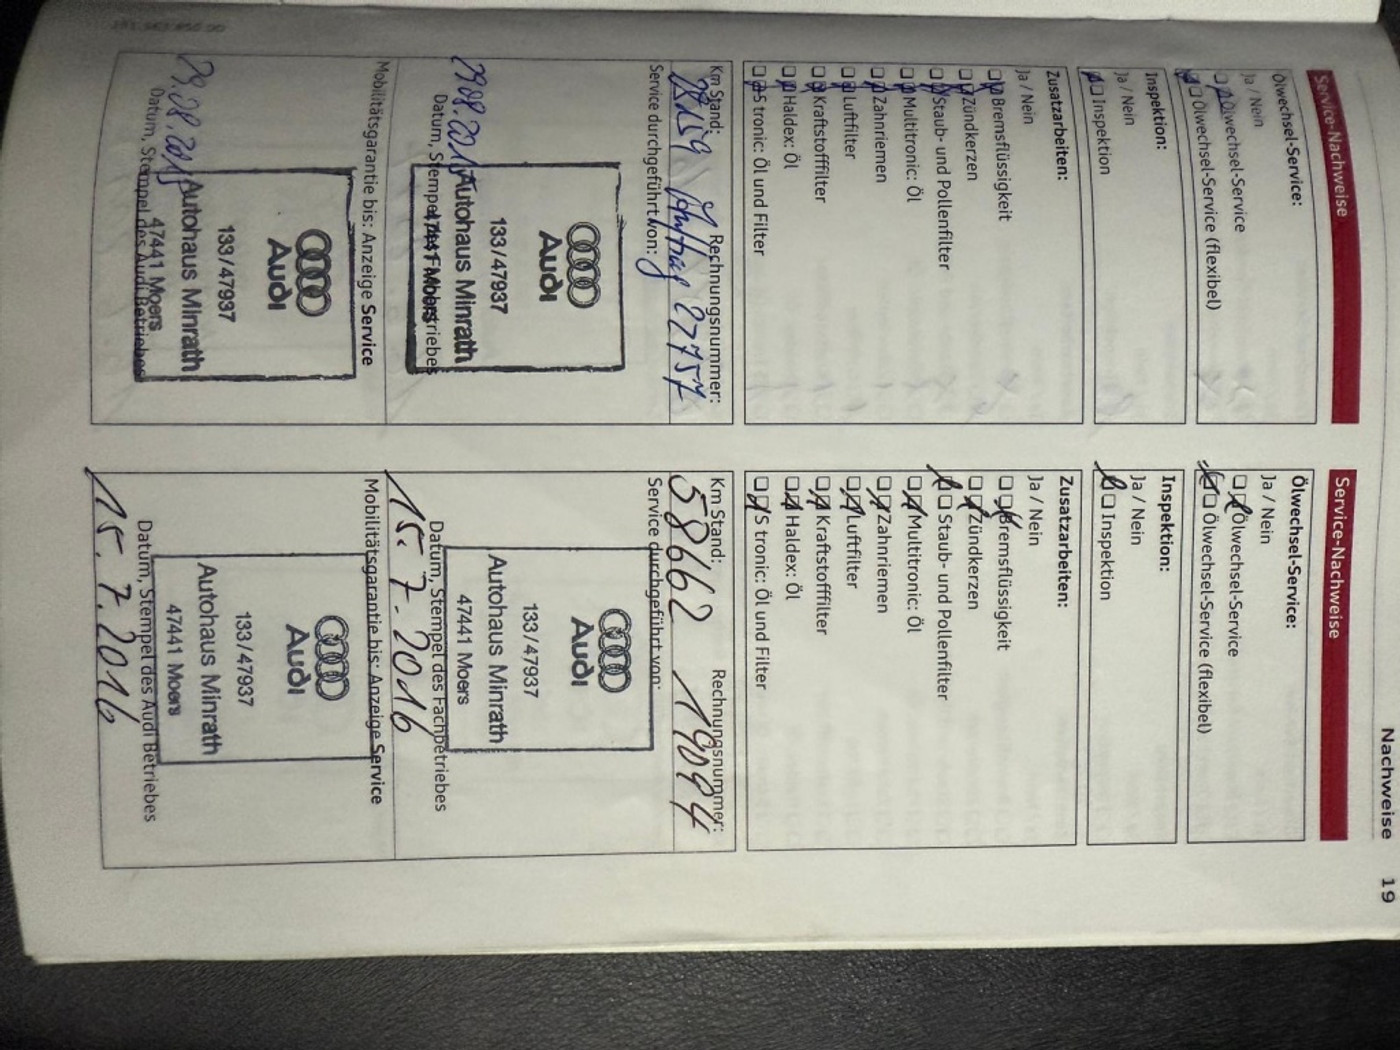 Nachweise 19
Service-Nachweise
Ölwechsel-Service:
Ja / Nein
Ölwechsel-Service
Ölwechsel-Service (flexibel)
Inspektion:
Ja / Nein
Inspektion
Zusatzarbeiten:
Ja / Nein
Bremsflüssigkeit
Zündkerzen
Staub- und Pollenfilter
Multitronic: Öl
Zahnriemen
Luftfilter
Kraftstofffilter
Haldex: Öl
S tronic: Öl und Filter
Km Stand: Rechnungsnummer:
Auftrag 22757
Service durchgeführt von:
Audi
133/47937
Autohaus Minrath
47441 Moers
29.08.2015
Datum, Stempel des Fachbetriebes
Mobilitätsgarantie bis: Anzeige Service
Audi
133/47937
Autohaus Minrath
47441 Moers
29.08.2015
Datum, Stempel des Audi Betriebes
Service-Nachweise
Ölwechsel-Service:
Ja / Nein
Ölwechsel-Service
Ölwechsel-Service (flexibel)
Inspektion:
Ja / Nein
Inspektion
Zusatzarbeiten:
Ja / Nein
Bremsflüssigkeit
Zündkerzen
Staub- und Pollenfilter
Multitronic: Öl
Zahnriemen
Luftfilter
Kraftstofffilter
Haldex: Öl
S tronic: Öl und Filter
Km Stand: Rechnungsnummer:
58662 19094
Service durchgeführt von:
Audi
133/47937
Autohaus Minrath
47441 Moers
15.7.2016
Datum, Stempel des Fachbetriebes
Mobilitätsgarantie bis: Anzeige Service
Audi
133/47937
Autohaus Minrath
47441 Moers
15.7.2016
Datum, Stempel des Audi Betriebes